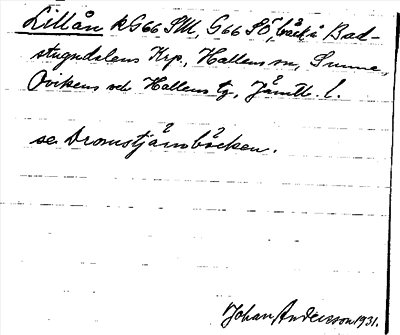 Lillån k G66 SM, G66 SÖ, bäck i Bad-
stugudalens Krp., Hallens sn, Sunne,
Ovikens och Hallens tg, Jämtl. l.
se Dromstjärnbäcken.
Johan Andersson 1931.